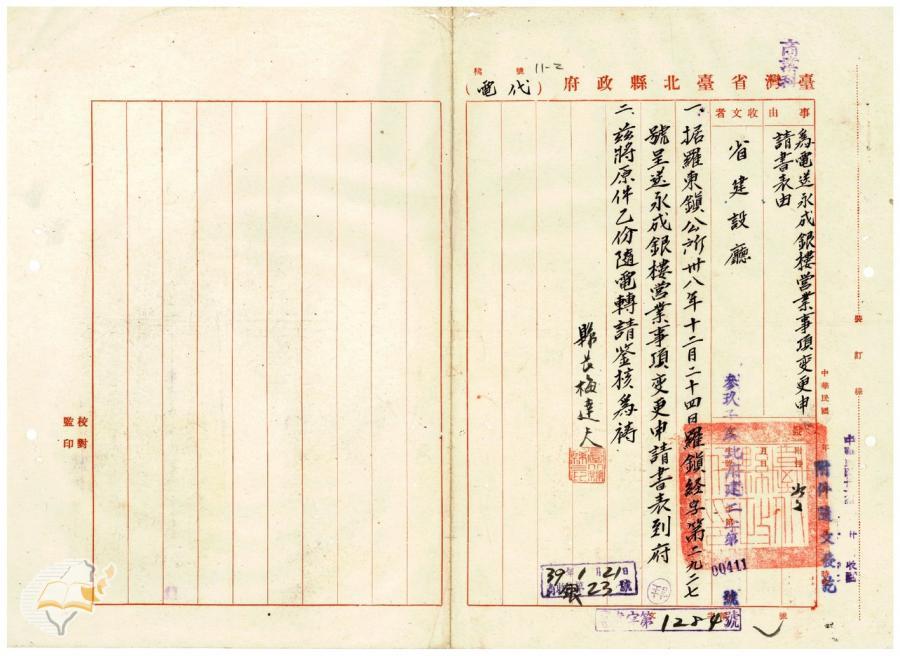 商務科
號 11-2
檔
臺灣省臺北縣政府（代電）
事由
為電送永成銀樓營業事項變更申
請書表由
收文者
省建設廳
裝訂線
中華民國
附件隨文發訖
參玖
北府建二字第
00411
號
一、据羅東鎮公所卅八年十二月二十四日羅鎮經字第二九二七
號呈送永成銀樓營業事項變更申請書表到府
二、茲將原件乙份隨電轉請鉴核為禱
縣長梅達夫
39年1月21日
銀 23 號
字第 1284 號
校對
監印